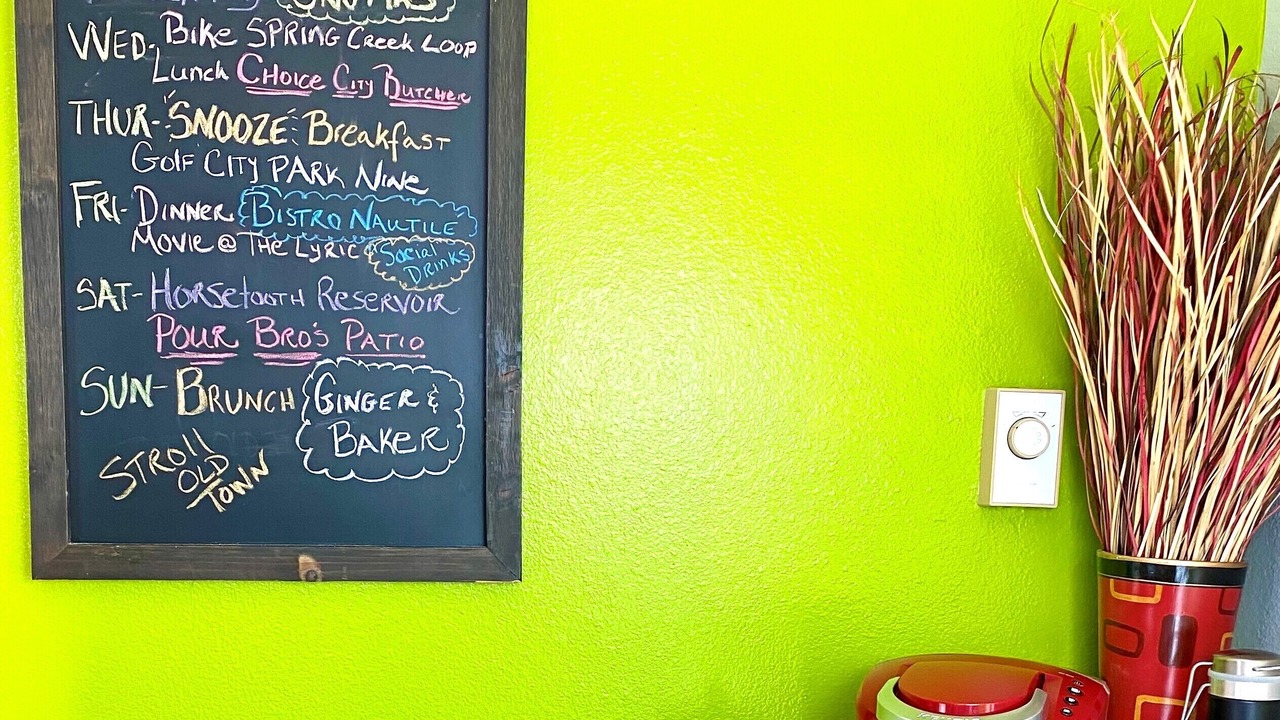 WED- Bike SPRING Creek Loop
Lunch CHOICE CITY BUTCHER
THUR- SNOOZE Breakfast
GOLF CITY PARK NINE
FRI- DINNER BISTRO NAUTILE
MOVIE @ THE LYRIC Social
DRINKS
SAT- HORSETOOTH RESERVOIR
POUR BRO'S PATIO
SUN- BRUNCH GINGER &
BAKER
STROLL
OLD
TOWN